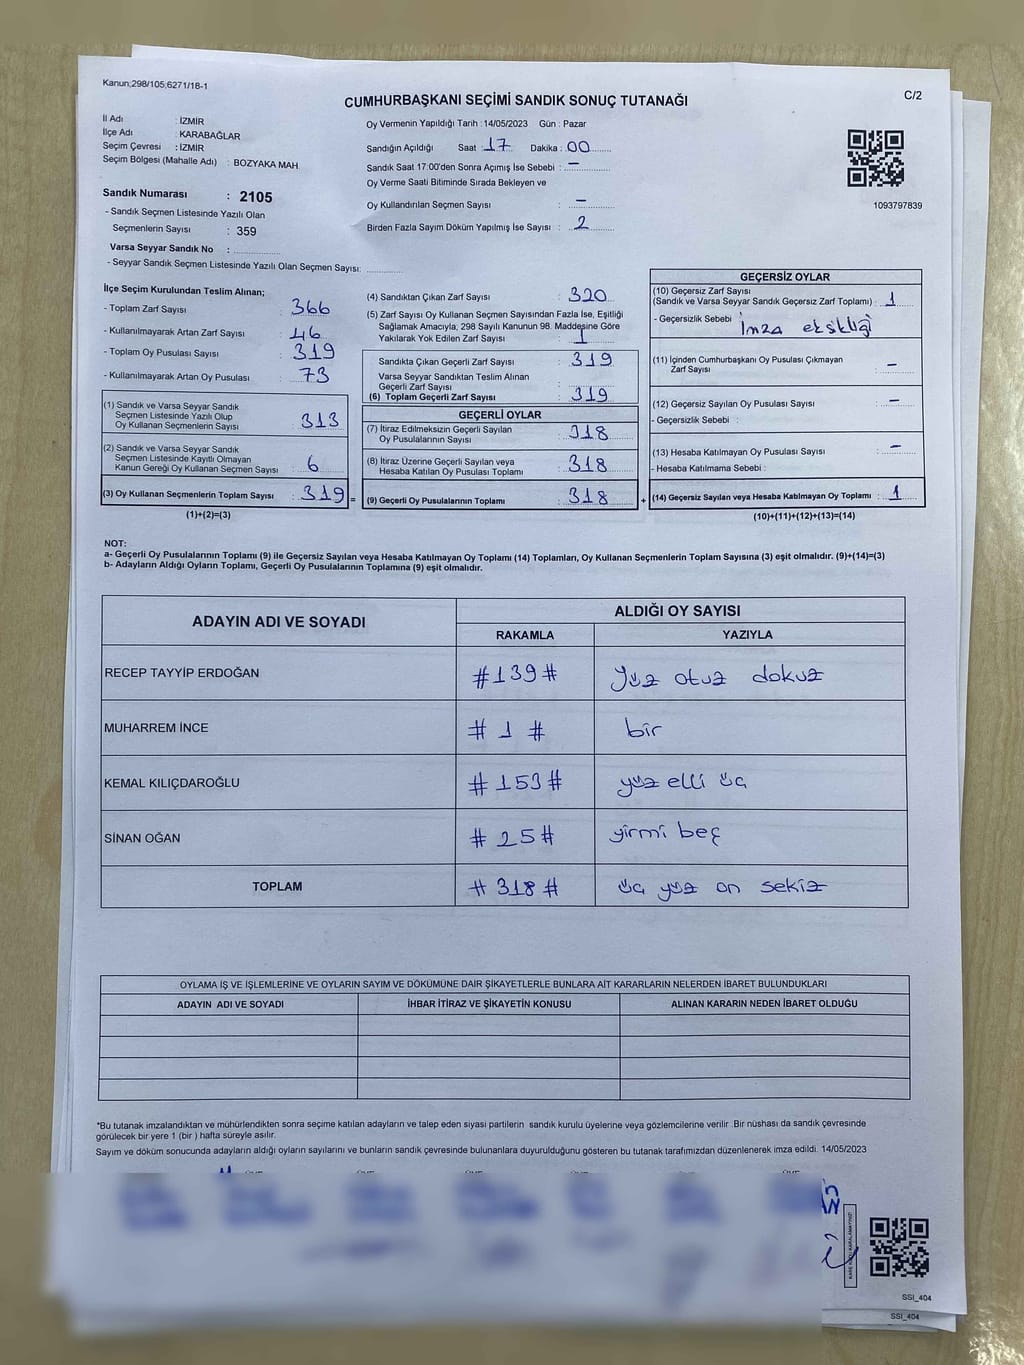 Kanun;298/105;6271/18-1
C/2
CUMHURBAŞKANI SEÇİMİ SANDIK SONUÇ TUTANAĞI
İl Adı : İZMİR
İlçe Adı : KARABAĞLAR
Seçim Çevresi : İZMİR
Seçim Bölgesi (Mahalle Adı) : BOZYAKA MAH.
Sandık Numarası : 2105
- Sandık Seçmen Listesinde Yazılı Olan
Seçmenlerin Sayısı : 359
Varsa Seyyar Sandık No :
- Seyyar Sandık Seçmen Listesinde Yazılı Olan Seçmen Sayısı:
Oy Vermenin Yapıldığı Tarih :14/05/2023 Gün : Pazar
Sandığın Açıldığı Saat : 17 Dakika : 00
Sandık Saat 17:00'den Sonra Açımış İse Sebebi : -
Oy Verme Saati Bitiminde Sırada Bekleyen ve
Oy Kullandırılan Seçmen Sayısı : -
Birden Fazla Sayım Döküm Yapılmış İse Sayısı : 2
1093797839
İlçe Seçim Kurulundan Teslim Alınan;
- Toplam Zarf Sayısı : 366
- Kullanılmayarak Artan Zarf Sayısı : 46
- Toplam Oy Pusulası Sayısı : 319
- Kullanılmayarak Artan Oy Pusulası : 73
(1) Sandık ve Varsa Seyyar Sandık
Seçmen Listesinde Yazılı Olup
Oy Kullanan Seçmenlerin Sayısı : 313
(2) Sandık ve Varsa Seyyar Sandık
Seçmen Listesinde Kayıtlı Olmayan
Kanun Gereği Oy Kullanan Seçmen Sayısı : 6
(3) Oy Kullanan Seçmenlerin Toplam Sayısı : 319 =
(1)+(2)=(3)
(4) Sandıktan Çıkan Zarf Sayısı : 320
(5) Zarf Sayısı Oy Kullanan Seçmen Sayısından Fazla İse, Eşitliği
Sağlamak Amacıyla; 298 Sayılı Kanunun 98. Maddesine Göre
Yakılarak Yok Edilen Zarf Sayısı : 1
Sandıkta Çıkan Geçerli Zarf Sayısı : 319
Varsa Seyyar Sandıktan Teslim Alınan
Geçerli Zarf Sayısı :
(6) Toplam Geçerli Zarf Sayısı : 319
GEÇERLİ OYLAR
(7) İtiraz Edilmeksizin Geçerli Sayılan
Oy Pusulalarının Sayısı : 318
(8) İtiraz Üzerine Geçerli Sayılan veya
Hesaba Katılan Oy Pusulası Toplamı : 318
(9) Geçerli Oy Pusulalarının Toplamı : 318 +
GEÇERSİZ OYLAR
(10) Geçersiz Zarf Sayısı
(Sandık ve Varsa Seyyar Sandık Geçersiz Zarf Toplamı) : 1
- Geçersizlik Sebebi : İmza eksikliği
(11) İçinden Cumhurbaşkanı Oy Pusulası Çıkmayan
Zarf Sayısı : -
(12) Geçersiz Sayılan Oy Pusulası Sayısı : -
- Geçersizlik Sebebi :
(13) Hesaba Katılmayan Oy Pusulası Sayısı : -
- Hesaba Katılmama Sebebi :
(14) Geçersiz Sayılan veya Hesaba Katılmayan Oy Toplamı : 1
(10)+(11)+(12)+(13)=(14)
NOT:
a- Geçerli Oy Pusulalarının Toplamı (9) ile Geçersiz Sayılan veya Hesaba Katılmayan Oy Toplamı (14) Toplamları, Oy Kullanan Seçmenlerin Toplam Sayısına (3) eşit olmalıdır. (9)+(14)=(3)
b- Adayların Aldığı Oyların Toplamı, Geçerli Oy Pusulalarının Toplamına (9) eşit olmalıdır.
ADAYIN ADI VE SOYADI
ALDIĞI OY SAYISI
RAKAMLA YAZIYLA
RECEP TAYYİP ERDOĞAN #139# Yüz otuz dokuz
MUHARREM İNCE # 1 # bir
KEMAL KILIÇDAROĞLU #153# yüz elli üç
SİNAN OĞAN # 25# yirmi beş
TOPLAM # 318 # üç yüz on sekiz
OYLAMA İŞ VE İŞLEMLERİNE VE OYLARIN SAYIM VE DÖKÜMÜNE DAİR ŞİKAYETLERLE BUNLARA AİT KARARLARIN NELERDEN İBARET BULUNDUKLARI
ADAYIN ADI VE SOYADI İHBAR İTİRAZ VE ŞİKAYETİN KONUSU ALINAN KARARIN NEDEN İBARET OLDUĞU
*Bu tutanak imzalandıktan ve mühürlendikten sonra seçime katılan adayların ve talep eden siyasi partilerin sandık kurulu üyelerine veya gözlemcilerine verilir .Bir nüshası da sandık çevresinde
görülecek bir yere 1 (bir ) hafta süreyle asılır.
Sayım ve döküm sonucunda adayların aldığı oyların sayılarını ve bunların sandık çevresinde bulunanlara duyurulduğunu gösteren bu tutanak tarafımızdan düzenlenerek imza edildi. 14/05/2023
SSI_404
SSI_404